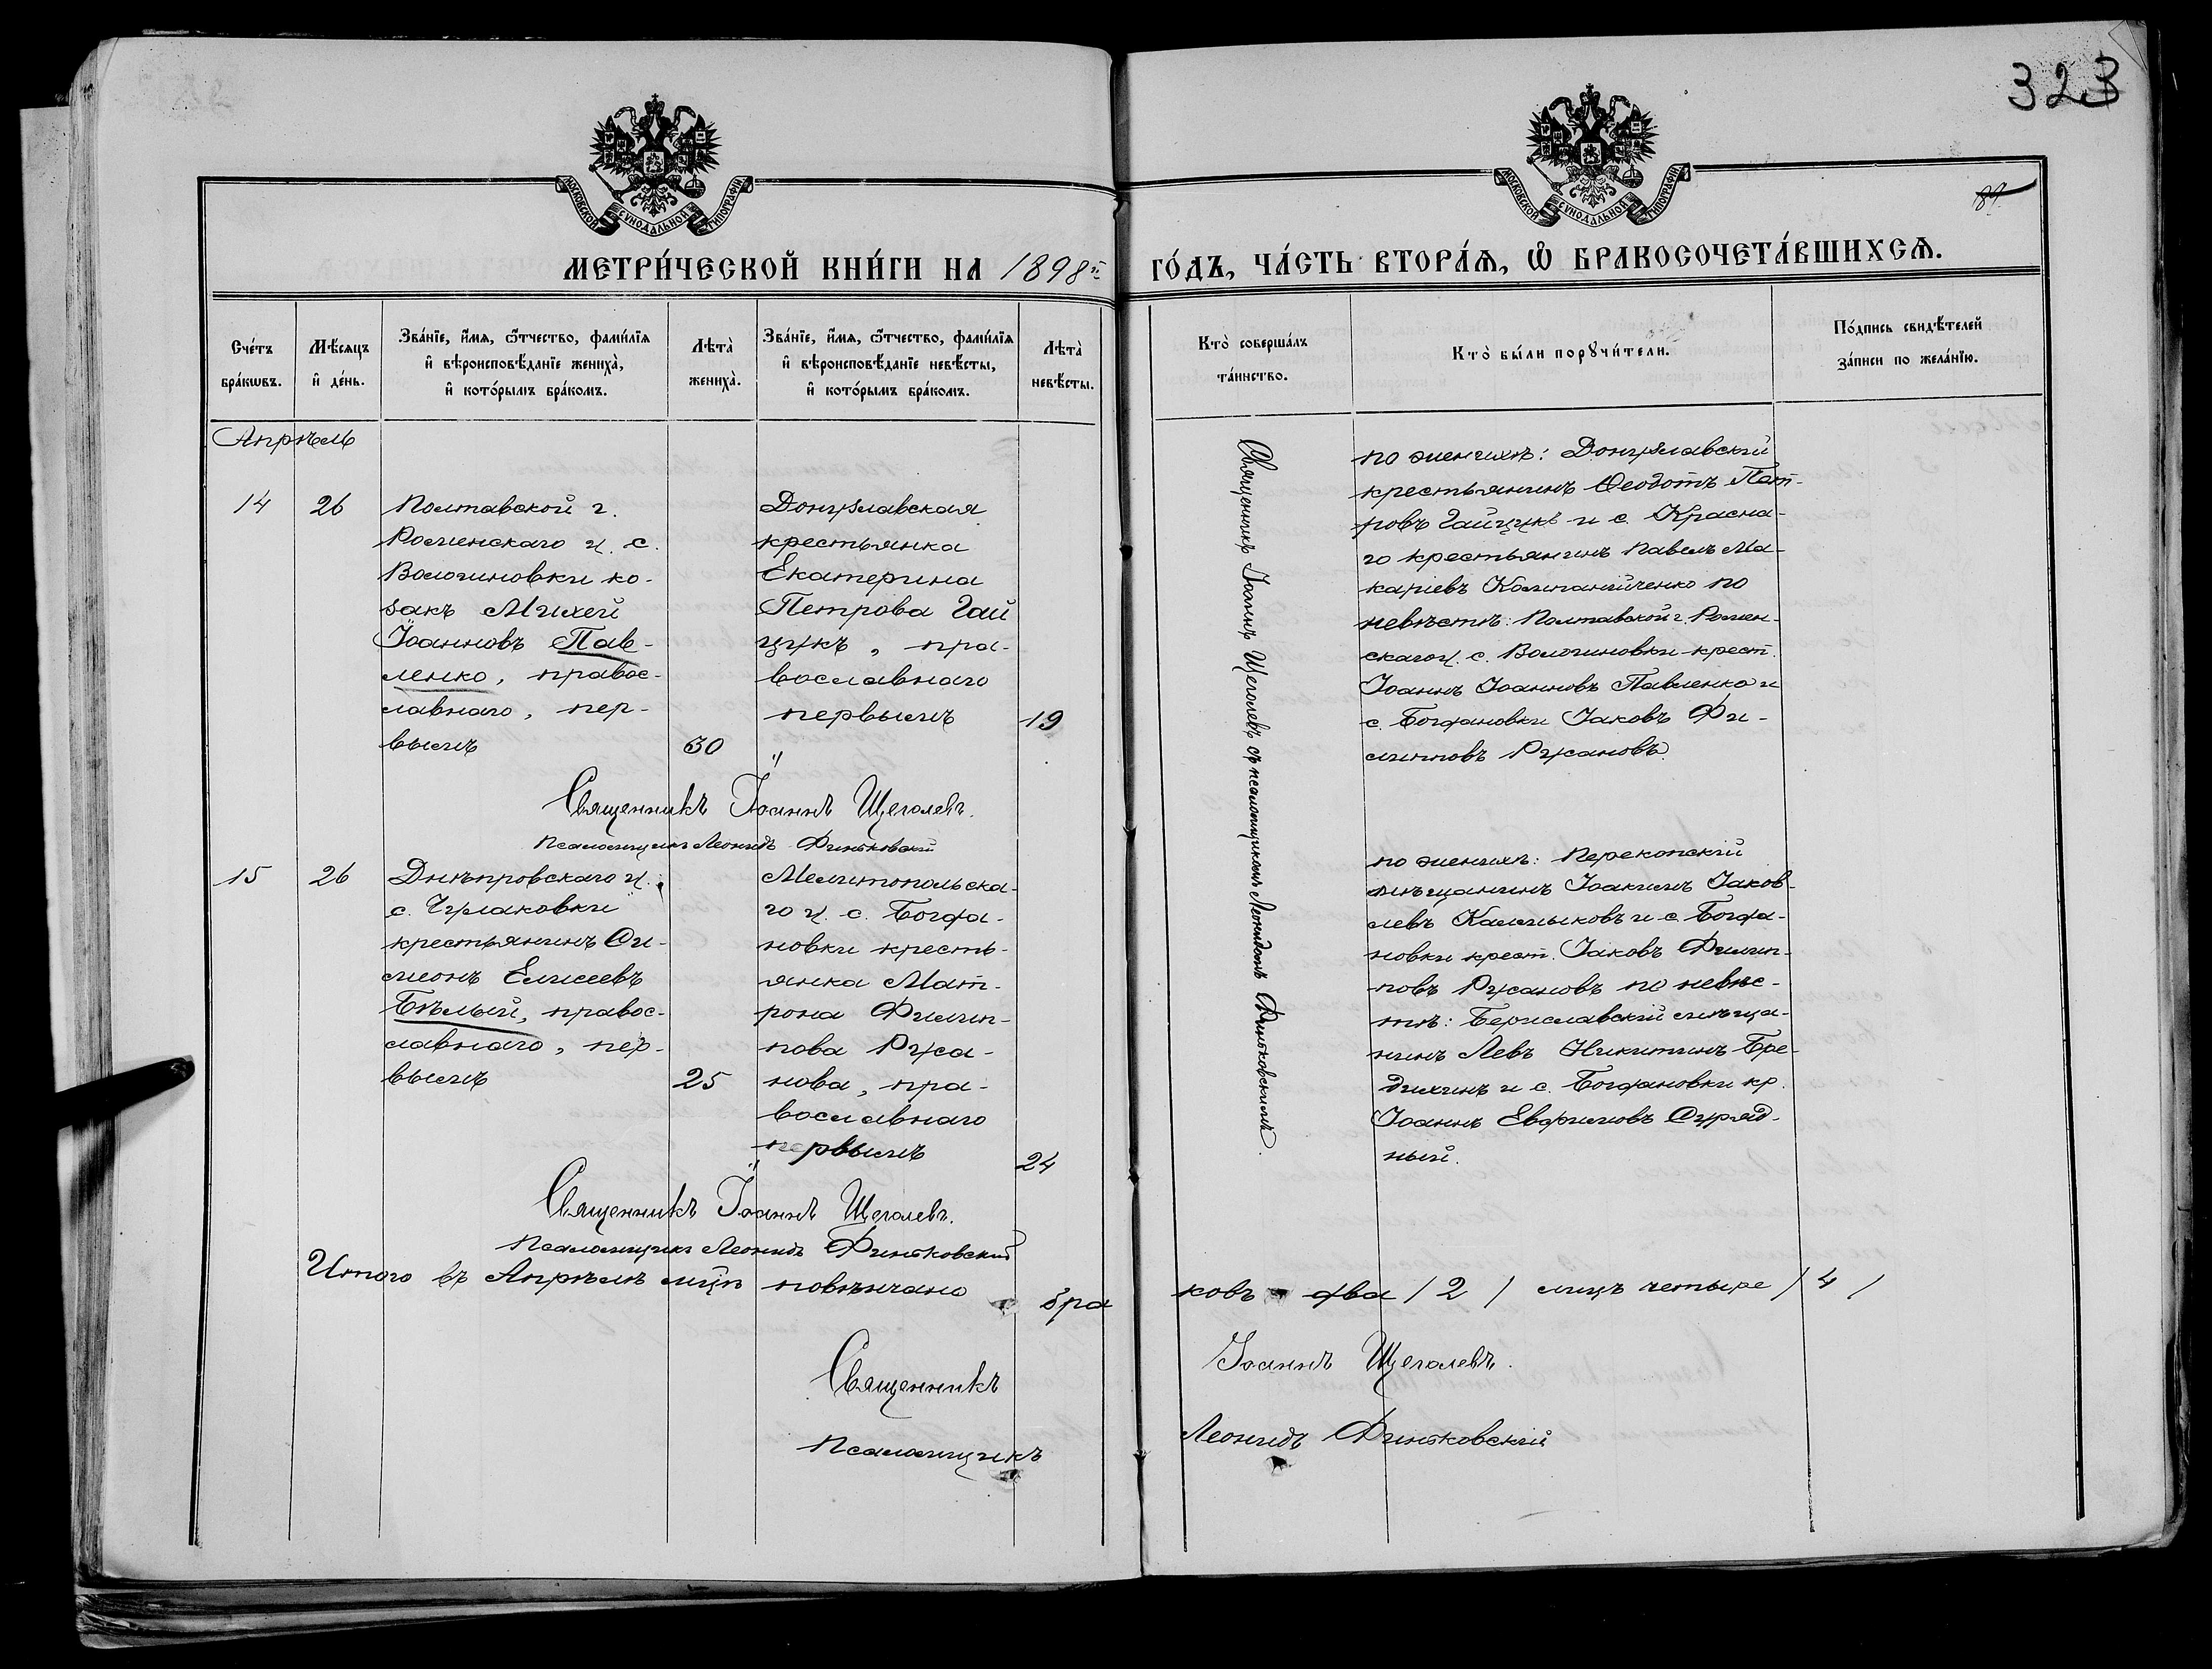 323
189.
МОСКОВСКОЙ СУНОДАЛЬНОЙ ТИПОГРАФІИ
МОСКОВСКОЙ СУНОДАЛЬНОЙ ТИПОГРАФІИ
МЕТРИ́ЧЕСКОЙ КНИ́ГИ НА 1898й ГО́ДЪ, ЧА́СТЬ ВТОРА́Ѧ, Ѽ БРАКОСОЧЕТА́ВШИХСѦ.
Сче́тъ бра́кѡвъ.
Мѣ́сѧцъ и҆ де́нь.
Зва́нїе, и҆́мѧ, ѻ҆́тчество, фами́лїѧ
и҆ вѣроисповѣ́данїе жениха̀,
и҆ кото́рымъ бра́комъ.
Лѣта̀ жениха̀.
Зва́нїе, и҆́мѧ, ѻ҆́тчество, фами́лїѧ
и҆ вѣроисповѣ́данїе невѣ́сты,
и҆ кото́рымъ бра́комъ.
Лѣта̀ невѣ́сты.
Кто̀ соверша́лъ
та́инство.
Кто̀ бы́ли порꙋчи́тели.
По́дпись свидѣ́телей
за́писи по жела́нїю.
Апрѣль
14
26
Полтавской г.
Роменскаго у. с.
Волошиновки ко-
закъ Михей
Іоанновъ Пав-
ленко, правос-
лавнаго, пер-
вымъ
30
Донузлавская
крестьянка
Екатерина
Петрова Гай
цукъ, пра-
вославнаго
первымъ
"
19
Священникъ Іоаннъ Щеголевъ съ псаломщикомъ Леонидомъ Финьковскимъ.
по женихѣ: Донузлавскій
крестьянинъ Ѳеодотъ Пет-
ровъ Гайцукъ и с. Красна-
го крестьянинъ Павелъ Ма-
каріевъ Компанійченко по
невѣстѣ: Полтавской г. Ромен-
скаго у. с. Волошиновки крест.
Іоаннъ Іоанновъ Павленко и
с. Богдановки Іаковъ Фи-
липповъ Русановъ.
Священникъ Іоаннъ Щеголевъ.
Псаломщикъ Леонидъ Финьковскій
15
26
Днѣпровскаго у.
с. Чулаковки
крестьянинъ Си-
меонъ Елисеевъ
Бѣлый, правос-
лавнаго, пер-
вымъ
25
Мелитопольска-
го у. с. Богда-
новки кресть-
янка Мат-
рона Филип-
пова Руса-
нова, пра-
вославнаго
первымъ
"
24
по женихѣ: Перекопскій
мѣщанинъ Іоакимъ Іаков-
левъ Калмыковъ и с. Богда-
новки крест. Іаковъ Филип-
повъ Русановъ по невѣс-
тѣ: Бериславскій мѣща-
нинъ Левъ Никитинъ Бре-
дихинъ и с. Богдановки кр.
Іоаннъ Евфимовъ Суряд-
ный.
Священникъ Іоаннъ Щеголевъ.
Псаломщикъ Леонидъ Финьковскій
Итого въ Апрѣлѣ м‑цѣ повѣнчано бра
ковъ два / 2 / лицъ четыре / 4 /
Священникъ Іоаннъ Щеголевъ.
Псаломщикъ Леонидъ Финьковскій